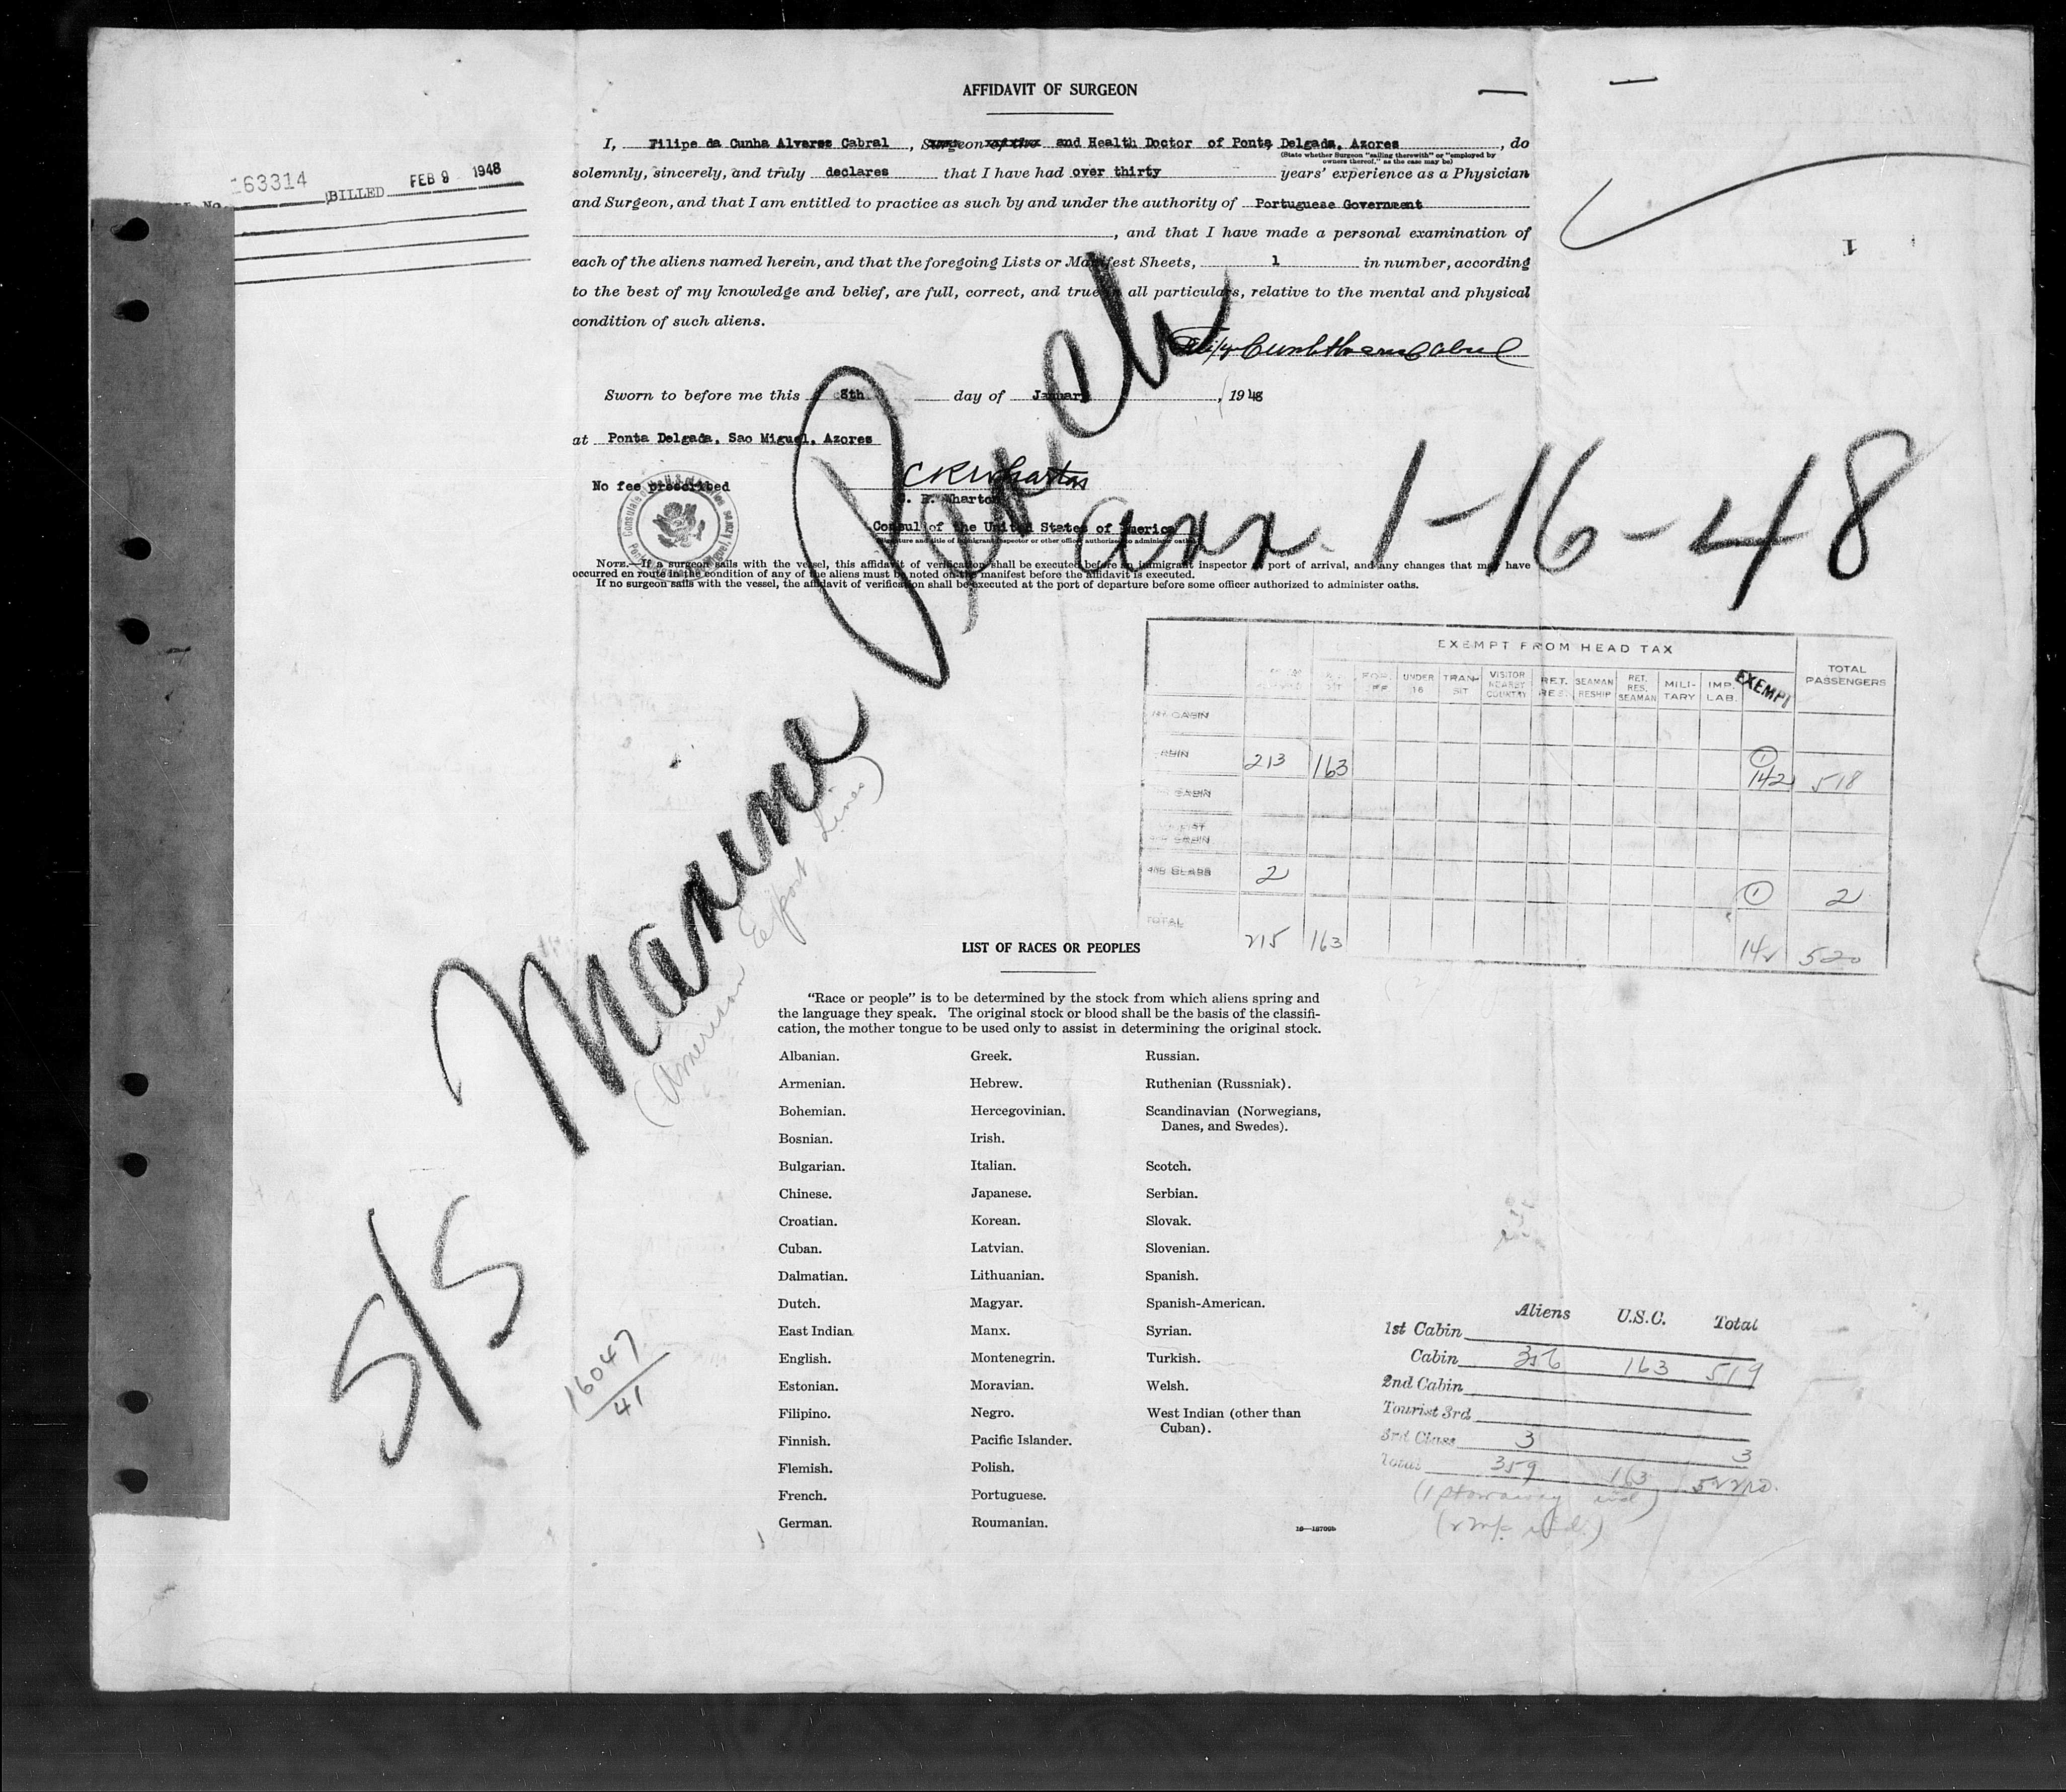 AFFIDAVIT OF SURGEON
I, Filipe da Cunha Alvares Cabral, Surgeon and Health Doctor of Ponta Delgada, Azores, do
(State whether Surgeon "sailing therewith" or "employed by
owners thereof," as the case may be)
solemnly, sincerely, and truly declares that I have had over thirty years' experience as a Physician
and Surgeon, and that I am entitled to practice as such by and under the authority of Portuguese Government
, and that I have made a personal examination of
each of the aliens named herein, and that the foregoing Lists or Manifest Sheets, 1 in number, according
to the best of my knowledge and belief, are full, correct, and true in all particulars, relative to the mental and physical
condition of such aliens.
Sworn to before me this 8th day of January, 1948
at Ponta Delgada, Sao Miguel, Azores
No fee prescribed
C R Wharton
C. R. Wharton
Consul of the United States of America
(Signature and title of immigrant inspector or other officer authorized to administer oaths)
NOTE.—If a surgeon sails with the vessel, this affidavit of verification shall be executed before an immigrant inspector at port of arrival, and any changes that may have
occurred en route in the condition of any of the aliens must be noted on the manifest before the affidavit is executed.
If no surgeon sails with the vessel, the affidavit of verification shall be executed at the port of departure before some officer authorized to administer oaths.
163314
BILLED FEB 9 1948
1
S/S Marine Perch
arr. 1-16-48
(American Export Lines)
16047
41
EXEMPT FROM HEAD TAX
UNDER 16
TRANSIT
VISITOR NEARBY COUNTRY
RET. RES.
SEAMAN RESHIP
RET. RES. SEAMAN
MILITARY
IMP. LAB.
EXEMPT
TOTAL PASSENGERS
1st CABIN
CABIN 213 163 1 142 518
CABIN
4TH CLASS 2 1 2
TOTAL 215 163 142 520
LIST OF RACES OR PEOPLES
"Race or people" is to be determined by the stock from which aliens spring and
the language they speak. The original stock or blood shall be the basis of the classifi-
cation, the mother tongue to be used only to assist in determining the original stock.
Albanian. Greek. Russian.
Armenian. Hebrew. Ruthenian (Russniak).
Bohemian. Hercegovinian. Scandinavian (Norwegians,
Danes, and Swedes).
Bosnian. Irish.
Bulgarian. Italian. Scotch.
Chinese. Japanese. Serbian.
Croatian. Korean. Slovak.
Cuban. Latvian. Slovenian.
Dalmatian. Lithuanian. Spanish.
Dutch. Magyar. Spanish-American.
East Indian Manx. Syrian.
English. Montenegrin. Turkish.
Estonian. Moravian. Welsh.
Filipino. Negro. West Indian (other than
Cuban).
Finnish. Pacific Islander.
Flemish. Polish.
French. Portuguese.
German. Roumanian.
16—18700b
Aliens U.S.C. Total
1st Cabin
Cabin 356 163 519
2nd Cabin
Tourist 3rd
3rd Class 3 3
Total 359 163 522
(1 stowaway incl)